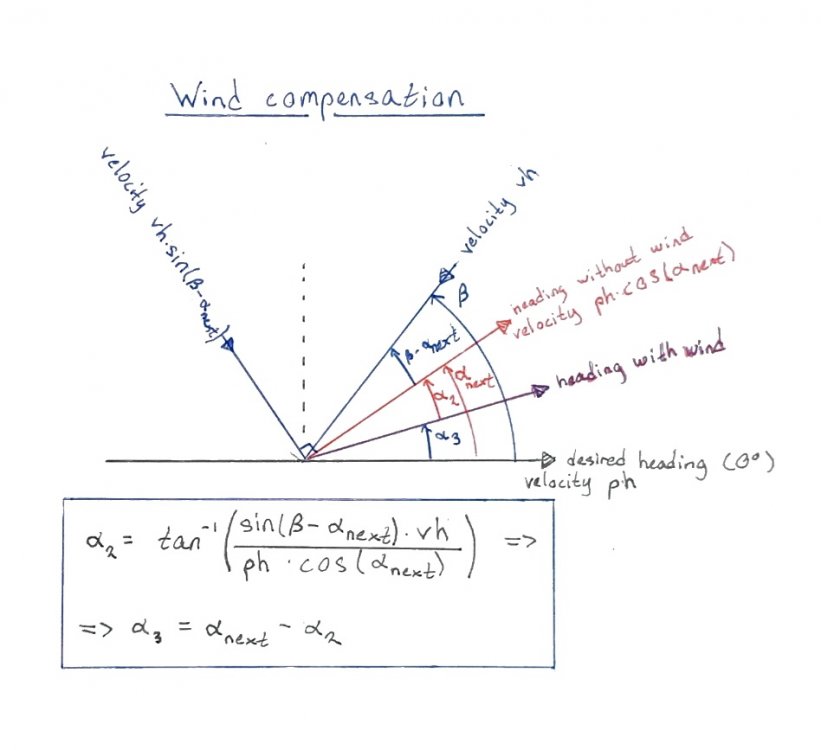 Wind compensation
velocity vh·sin(β-αnext)
velocity vh
β
heading without wind
velocity ph·cos(αnext)
β-αnext
αnext
α2
heading with wind
α3
desired heading (0°)
velocity ph
α2 = tan⁻¹(sin(β-αnext)·vh / ph·cos(αnext)) =>
=> α3 = αnext - α2